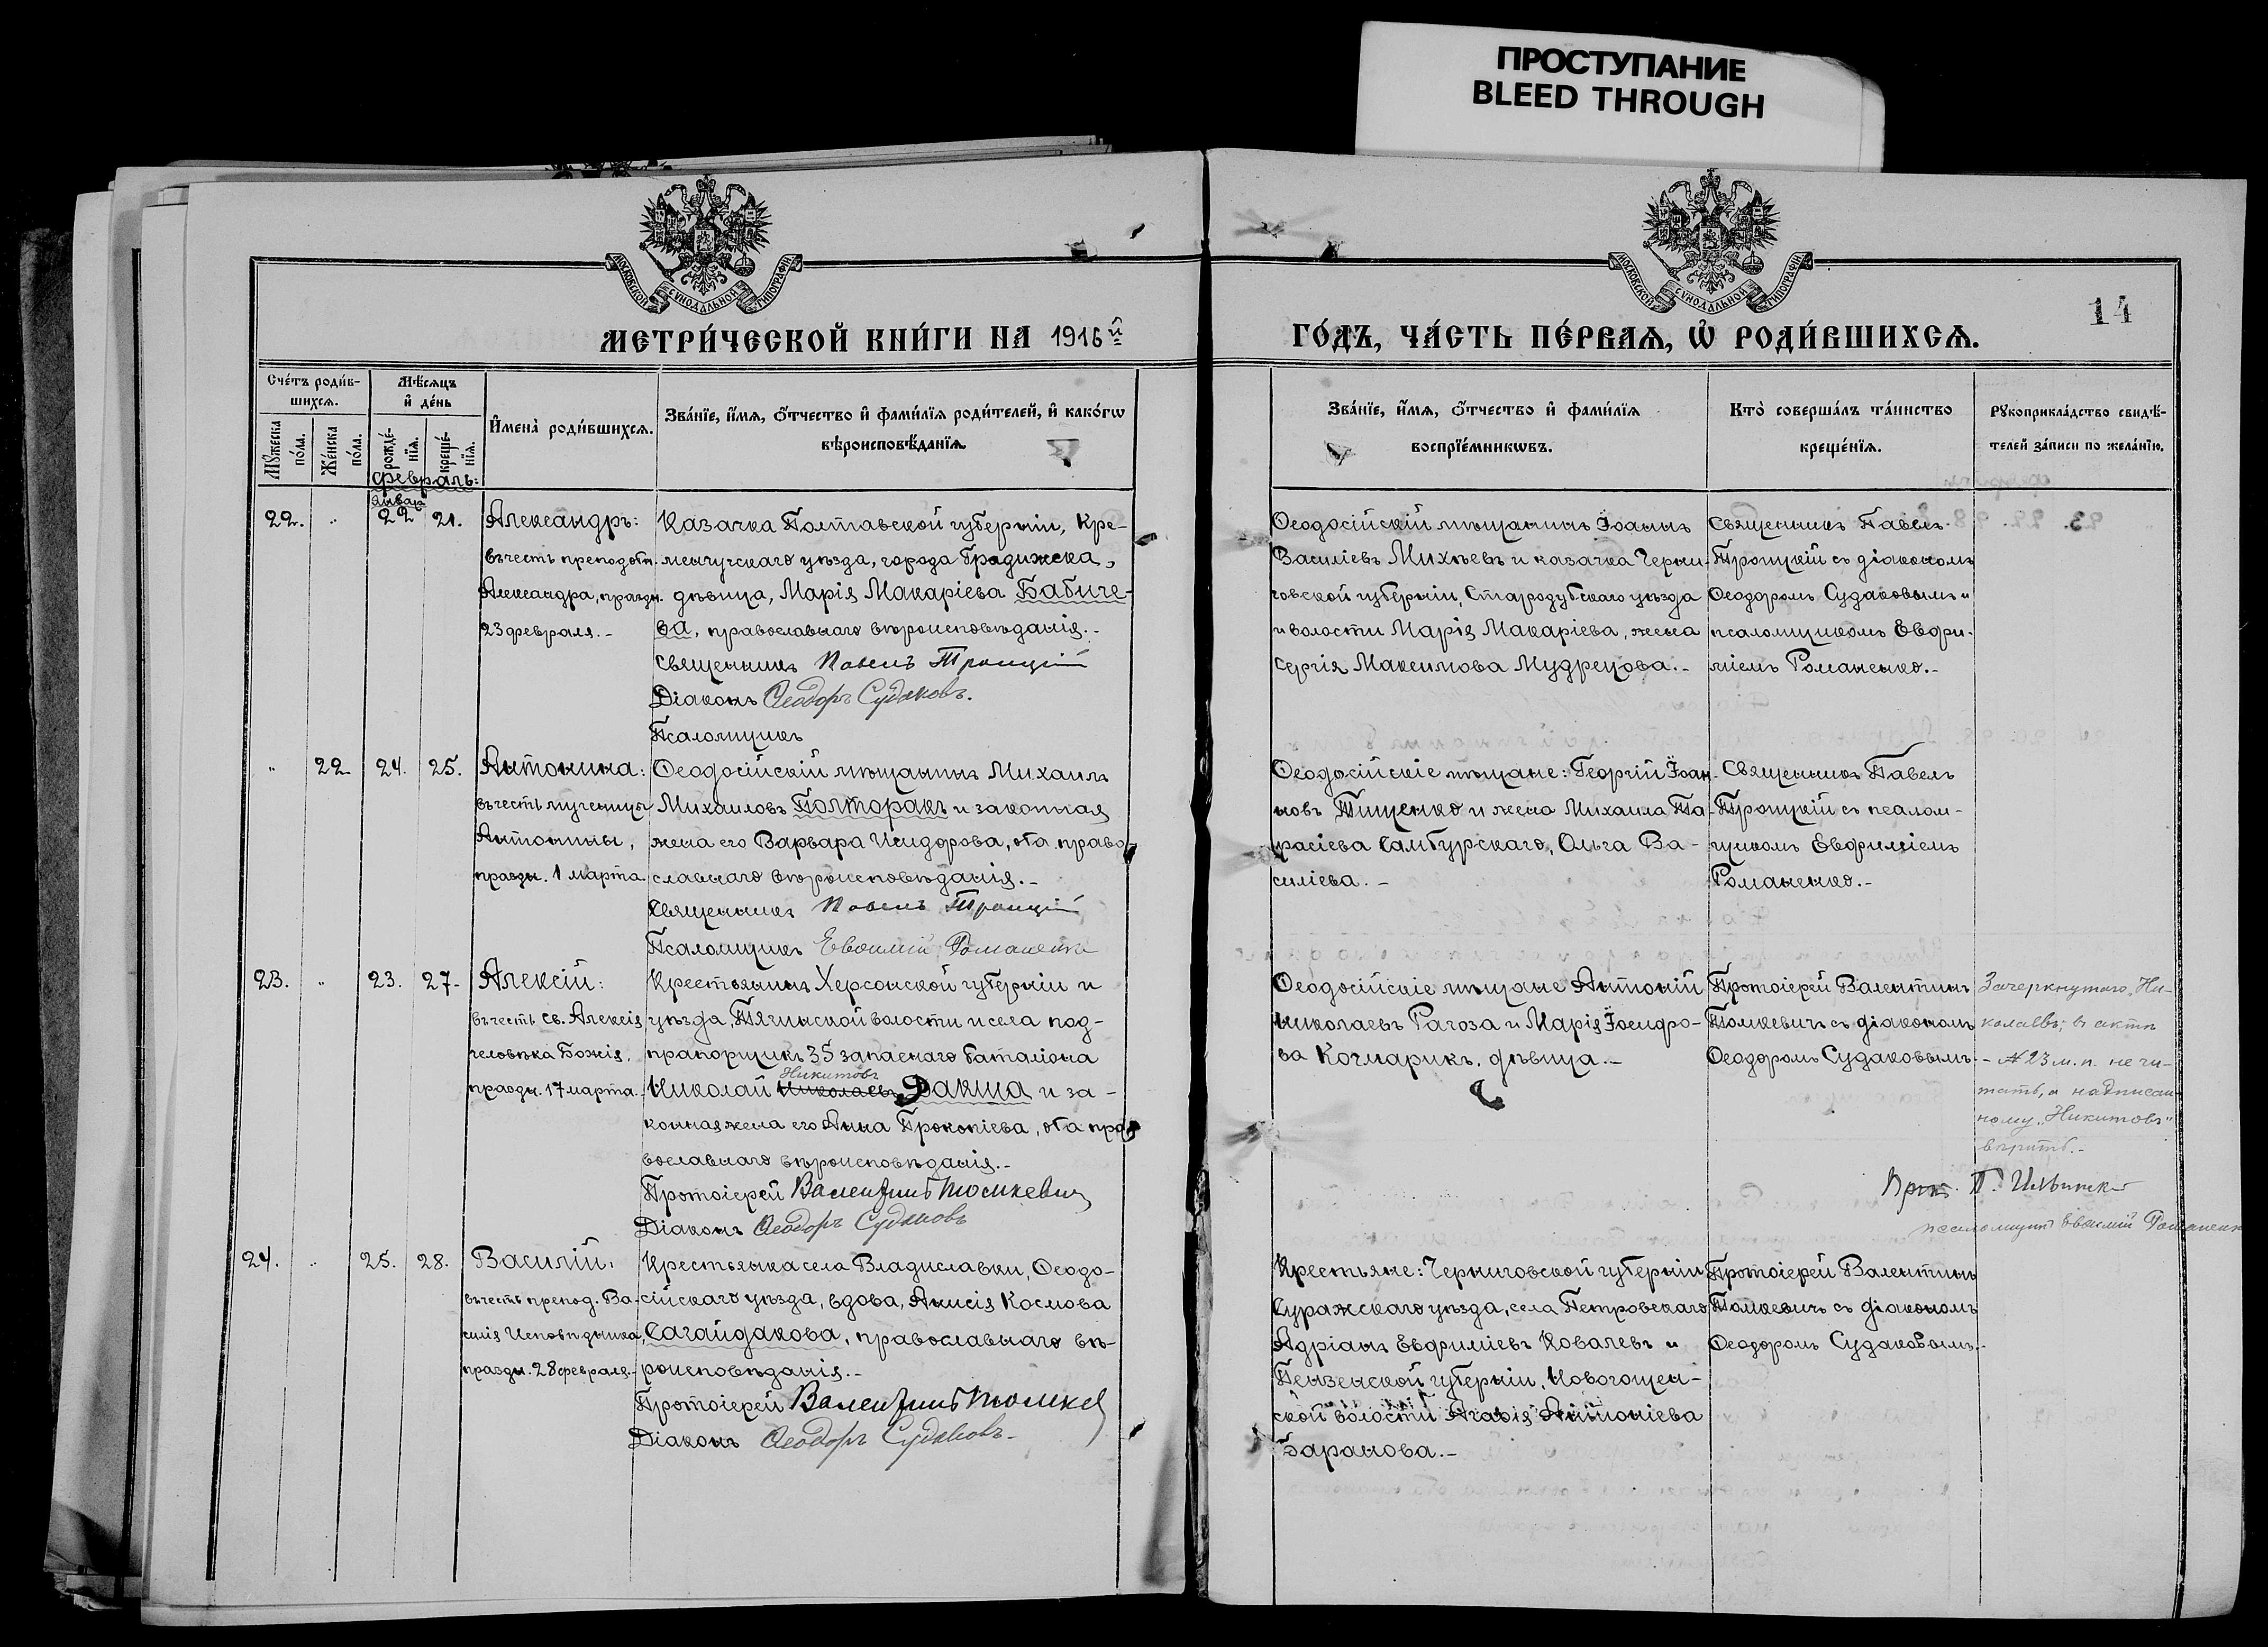 ПРОСТУПАНИЕ
BLEED THROUGH
МОСКОВСКОЙ СѴНОДАЛЬНОЙ ТИПОГРАФІИ
МОСКОВСКОЙ СѴНОДАЛЬНОЙ ТИПОГРАФІИ
14
МЕТРИ́ЧЕСКОЙ КНИ́ГИ НА 1916й
ГО́ДЪ, ЧА́СТЬ ПЕ́РВАѦ, Ѽ РОДИ́ВШИХСѦ.
Сче́тъ роди́в-
шихсѧ.
Мѣ́сѧцъ
и҆ де́нь
Мꙋ́жеска
по́ла.
Же́нска
по́ла.
рожде́-
нїѧ.
креще́-
нїѧ.
И҆мена̀ роди́вшихсѧ.
Зва́нїе, и҆́мѧ, ѻ҆́тчество и҆ фами́лїѧ роди́телей, и҆ како́гѡ
вѣроисповѣ́данїѧ.
Зва́нїе, и҆́мѧ, ѻ҆́тчество и҆ фами́лїѧ
воспрїе́мникѡвъ.
Кто̀ соверша́лъ та́инство
креще́нїѧ.
Рꙋкоприкла́дство свидѣ́-
телей за́писи по жела́нїю.
февраль:
январь
22. " 22 21.
Александръ:
въ честь преподобн.
Александра, праздн.
23 февраля.-
Казачка Полтавской губерніи, Кре-
менчугскаго уѣзда, города Градижска,
дѣвица, Марія Макаріева Бабиче-
ва, православнаго вѣроисповѣданія.-
Священникъ Павелъ Троицкій
Діаконъ Ѳеодоръ Судаковъ.
Псаломщикъ
Ѳеодосійскій мѣщанинъ Іоаннъ
Василіевъ Михѣевъ и казачка Черни-
говской губерніи, Стародубскаго уѣзда
и волости Марія Макаріева, жена
Сергія Максимова Мудрецова.-
Священникъ Павелъ
Троицкій съ діакономъ
Ѳеодоромъ Судаковымъ и
псаломщикомъ Евфи-
міемъ Романенко.-
" 22 24. 25.
Антонина:
въ честь мученицы
Антонины,
праздн. 1 марта.
Ѳеодосійскій мѣщанинъ Михаилъ
Михаиловъ Полторакъ и законная
жена его Варвара Исидорова, оба право-
славнаго вѣроисповѣданія.-
Священникъ Павелъ Троицкій
Псаломщикъ Евѳимій Романенко
Ѳеодосійскіе мѣщане: Георгій Іоан-
новъ Тищенко и жена Михаила Та-
расіева Самбурскаго, Ольга Ва-
силіева.-
Священникъ Павелъ
Троицкій съ псалом-
щикомъ Евфиміемъ
Романенко.-
23. " 23. 27.
Алексій:
въ честь св. Алексія
человѣка Божія,
праздн. 17 марта.
Крестьянинъ Херсонской губерніи и
уѣзда, Тягинской волости и села под-
прапорщикъ 35 запаснаго баталіона
Никитовъ
Николай Николаевъ Вакша и за-
конная жена его Анна Прокопіева, оба пра-
вославнаго вѣроисповѣданія.-
Протоіерей Валентинъ Томкевичъ
Діаконъ Ѳеодоръ Судаковъ
Ѳеодосійскіе мѣщане Антоній
Николаевъ Рагоза и Марія Іосифо-
ва Кочмарикъ, дѣвица.-
Протоіерей Валентинъ
Томкевичъ съ діакономъ
Ѳеодоромъ Судаковымъ.
Зачеркнутаго „Ни-
колаевъ" въ актѣ
- № 23 м. п. не чи-
тать, а надписан-
ному „Никитовъ"
вѣрить.-
Прот. П.
псаломщикъ Евѳимій Романенко
24. " 25. 28.
Василій:
въ честь препод. Ва-
силія Исповѣдника,
праздн. 28 февраля.-
Крестьянка села Владиславки, Ѳеодо-
сійскаго уѣзда, вдова, Анисія Космова
Сагайдакова, православнаго вѣ-
роисповѣданія.-
Протоіерей Валентинъ Томкев
Діаконъ Ѳеодоръ Судаковъ.-
Крестьяне: Черниговской губерніи
Суражскаго уѣзда, села Петровскаго
Адріанъ Евфиміевъ Ковалевъ и
Пензенской губерніи, Новогощен-
ской волости Агафія Антоніева
Баранова.-
Протоіерей Валентинъ
Томкевичъ съ діакономъ
Ѳеодоромъ Судаковымъ.-